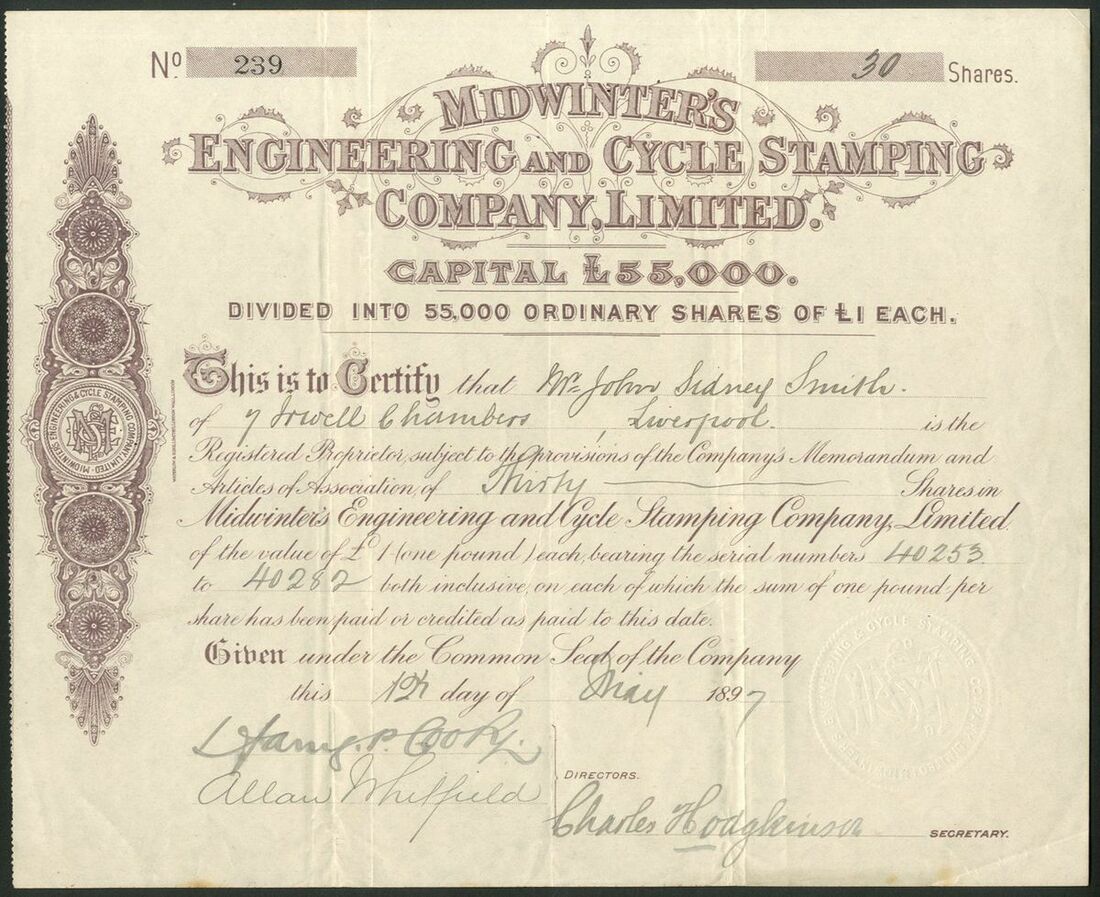 No. 239 30 Shares.
MIDWINTER'S
ENGINEERING AND CYCLE STAMPING
COMPANY, LIMITED.
CAPITAL £55,000.
DIVIDED INTO 55,000 ORDINARY SHARES OF £1 EACH.
This is to Certify that Mr. John Sidney Smith.
of 7 Irwell Chambers, Liverpool. is the
Registered Proprietor, subject to the provisions of the Company's Memorandum and
Articles of Association, of Thirty Shares in
Midwinter's Engineering and Cycle Stamping Company, Limited
of the value of £1 (one pound) each, bearing the serial numbers 40253
to 40282 both inclusive, on each of which the sum of one pound per
share has been paid or credited as paid to this date.
Given under the Common Seal of the Company
this day of May 1897
Cook
Allan Whiffield
DIRECTORS.
Charles Hodgkinson SECRETARY.
MIDWINTER'S ENGINEERING & CYCLE STAMPING COMPANY, LIMITED